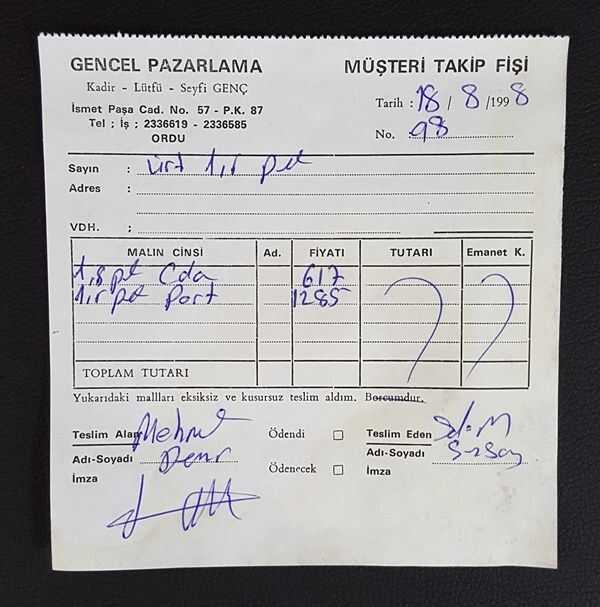 GENCEL PAZARLAMA
Kadir - Lütfü - Seyfi GENÇ
İsmet Paşa Cad. No. 57 - P.K. 87
Tel ; İş ; 2336619 - 2336585
ORDU
MÜŞTERİ TAKİP FİŞİ
Tarih : 18 / 8 /1998
No. 98
Sayın : 1,5 pet
Adres :
VDH. :
MALIN CİNSİ Ad. FİYATI TUTARI Emanet K.
1,8 pet Cda 617
1,5 pet Port 1285
TOPLAM TUTARI
Yukarıdaki mallları eksiksiz ve kusursuz teslim aldım. Borcumdur.
Teslim Alan Mehmet Ödendi Teslim Eden
Adı-Soyadı Demir Adı-Soyadı
Ödenecek
İmza İmza